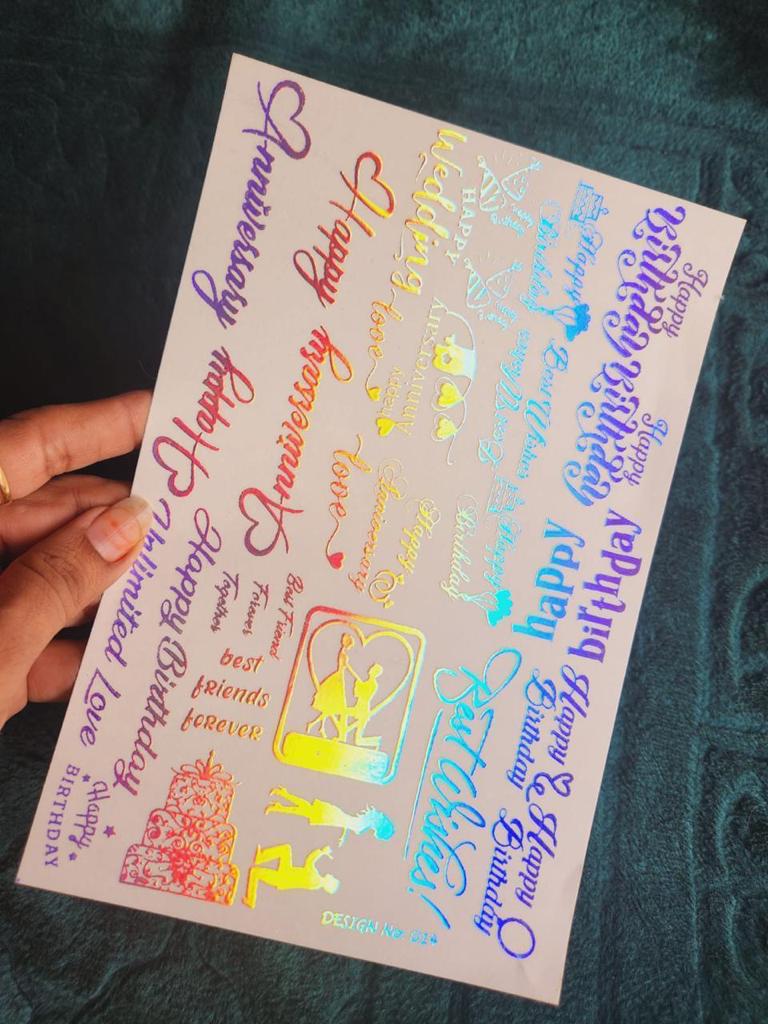 Anniversary
Happy
Unlimited Love
Happy
Anniversary
Happy Birthday
Happy
BIRTHDAY
Wedding
HAPPY
love
Happy
Anniversary
ANNIVERSARY
love
Happy
Anniversary
Best Friend
Forever
Together
best
friends
forever
Happy
Birthday
Best Wishes
Happy
Birthday
Best Wishes!
Happy
Birthday
Happy
Birthday
happy
birthday
Happy
Birthday
Happy
Birthday
DESIGN No: 014